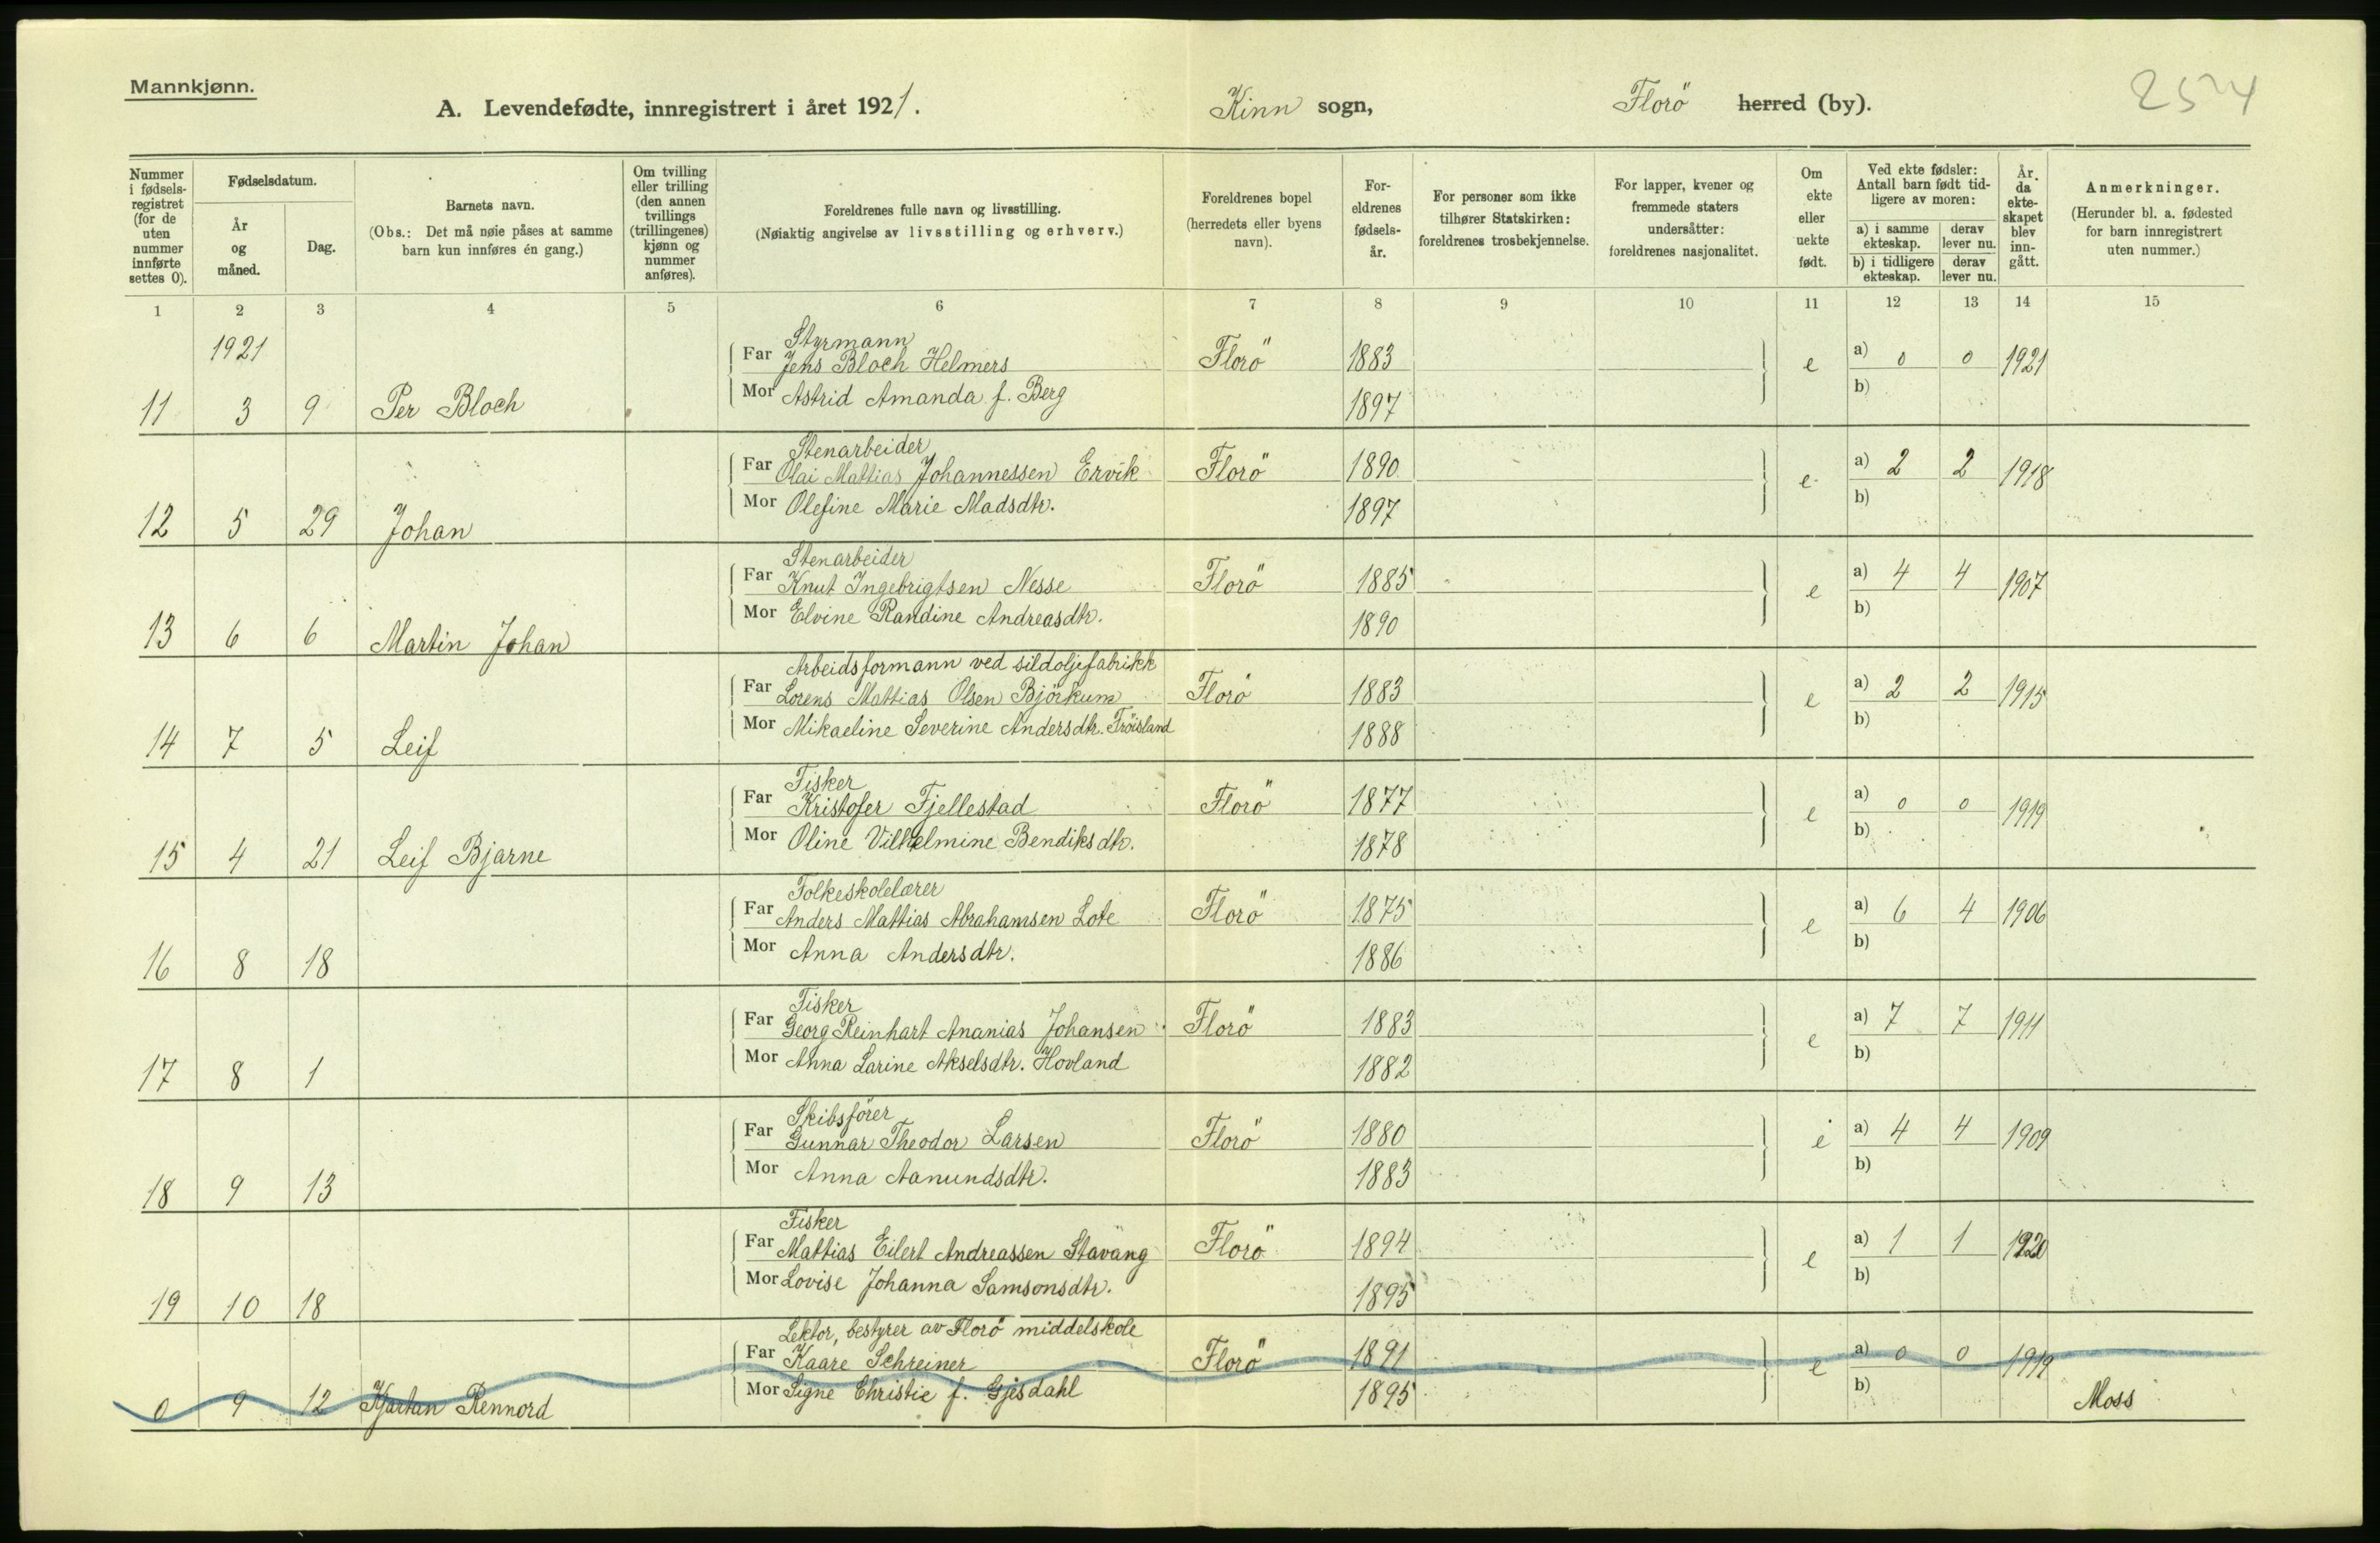 Mannkjønn.
A. Levendefødte, innregistrert i året 1921.
Kinn sogn,
Florö herred (by).
2574
Nummer i fødsels-registret (for de uten nummer innførte settes 0).
Fødselsdatum.
År og måned.
Dag.
Barnets navn.
(Obs.: Det må nøie påses at samme barn kun innføres én gang.)
Om tvilling eller trilling (den annen tvillings (trillingenes) kjønn og nummer anføres).
Foreldrenes fulle navn og livsstilling.
(Nøiaktig angivelse av livsstilling og erhverv.)
Foreldrenes bopel (herredets eller byens navn).
For-eldrenes fødsels-år.
For personer som ikke tilhører Statskirken: foreldrenes trosbekjennelse.
For lapper, kvener og fremmede staters undersåtter: foreldrenes nasjonalitet.
Om ekte eller uekte født.
Ved ekte fødsler: Antall barn født tid-ligere av moren:
a) i samme ekteskap.
derav lever nu.
b) i tidligere ekteskap.
derav lever nu.
År da ekte-skapet blev inn-gått.
Anmerkninger.
(Herunder bl. a. fødested for barn innregistrert uten nummer.)
1 2 3 4 5 6 7 8 9 10 11 12 13 14 15
1921
Styrmann
Far Jens Bloch Helmers Florö 1883 e a) 0 0 1921
Mor Astrid Amanda f. Berg 1897 b)
11 3 9 Per Bloch
Stenarbeider
Far Olai Mattias Johannessen Ervik Florö 1890 e a) 2 2 1918
Mor Olefine Marie Madsdtr. 1897 b)
12 5 29 Johan
Stenarbeider
Far Knut Ingebrigtsen Nesse Florö 1885 e a) 4 4 1907
Mor Elvine Randine Andreasdtr. 1890 b)
13 6 6 Martin Johan
Arbeidsformann ved sildoljefabrikk
Far Lorens Mattias Olsen Björkum Florö 1883 e a) 2 2 1915
Mor Mikaeline Severine Andersdtr. Tröisland 1888 b)
14 7 5 Leif
Fisker
Far Kristofer Fjellestad Florö 1877 e a) 0 0 1919
Mor Oline Vilhelmine Bendiksdtr. 1878 b)
15 4 21 Leif Bjarne
Folkeskolelærer
Far Anders Mattias Abrahamsen Lote Florö 1875 e a) 6 4 1906
Mor Anna Andersdtr. 1886 b)
16 8 18
Fisker
Far Georg Reinhart Ananias Johansen Florö 1883 e a) 7 7 1911
Mor Anna Larine Akselsdtr. Hovland 1882 b)
17 8 1
Skibsförer
Far Gunnar Theodor Larsen Florö 1880 e a) 4 4 1909
Mor Anna Aanundsdtr. 1883 b)
18 9 13
Fisker
Far Mattias Eilert Andreassen Stavang Florö 1894 e a) 1 1 1920
Mor Lovise Johanna Samsonsdtr. 1895 b)
19 10 18
Lektor, bestyrer av Florö middelskole
Far Kaare Schreiner Florö 1891 e a) 0 0 1919
Mor Signe Christie f. Gjesdahl 1895 b)
0 9 12 Kjartan Rennord Moss